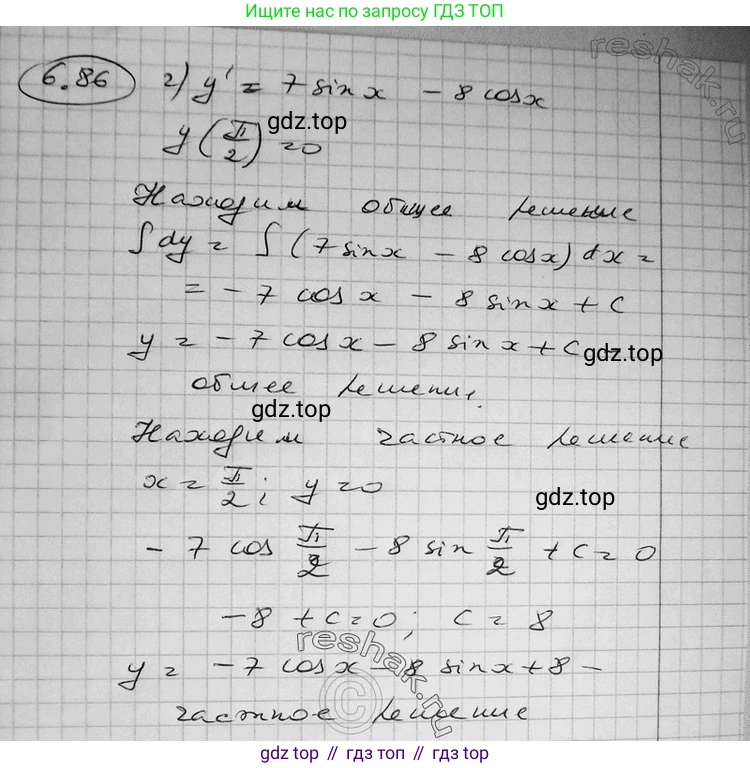 Ищите нас по запросу ГДЗ ТОП
reshak.ru
6.86 г) y' = 7 sin x - 8 cos x
gdz.top
y(π/2) = 0
Находим общее решение
∫ dy = ∫ (7 sin x - 8 cos x) dx =
= - 7 cos x - 8 sin x + C
y = - 7 cos x - 8 sin x + C
gdz.top
общее решение.
gdz.top
Находим частное решение
x = π/2; y = 0
gdz.top
- 7 cos π/2 - 8 sin π/2 + C = 0
- 8 + C = 0; C = 8
reshak.ru
y = - 7 cos x - 8 sin x + 8 -
©
частное решение
gdz top // гдз топ // gdz top // гдз топ